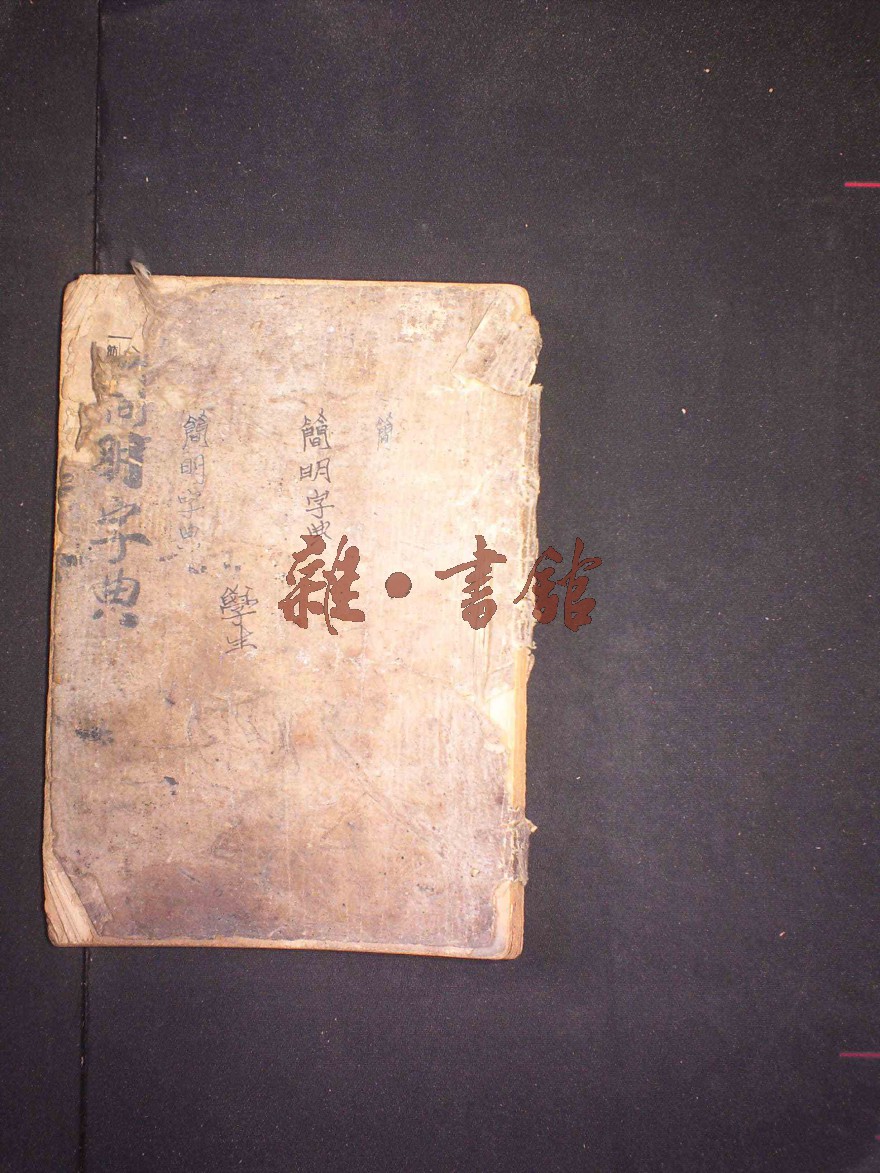 簡
簡明字典
學生
簡明字典
簡明字典
雜·書館